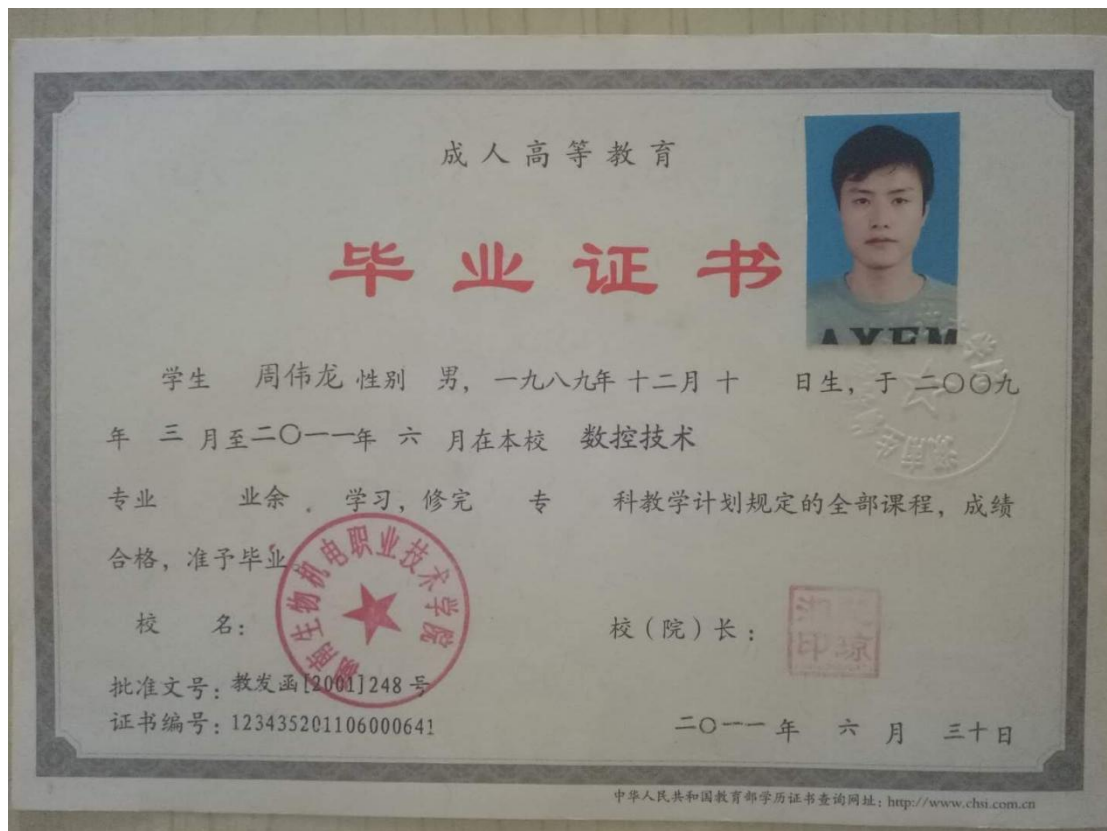 成人高等教育
毕业证书
AXEM
学生 周伟龙 性别 男，一九八九年十二月十 日生，于二〇〇九
年 三 月至二〇一一年 六 月在本校 数控技术
专业 业余 学习，修完 专 科教学计划规定的全部课程，成绩
合格，准予毕业
湖南生物机电职业技术学院
校 名：
校（院）长：
批准文号：教发函[2001]248号
证书编号：123435201106000641
二〇一一年 六 月 三十日
中华人民共和国教育部学历证书查询网址：http://www.chsi.com.cn